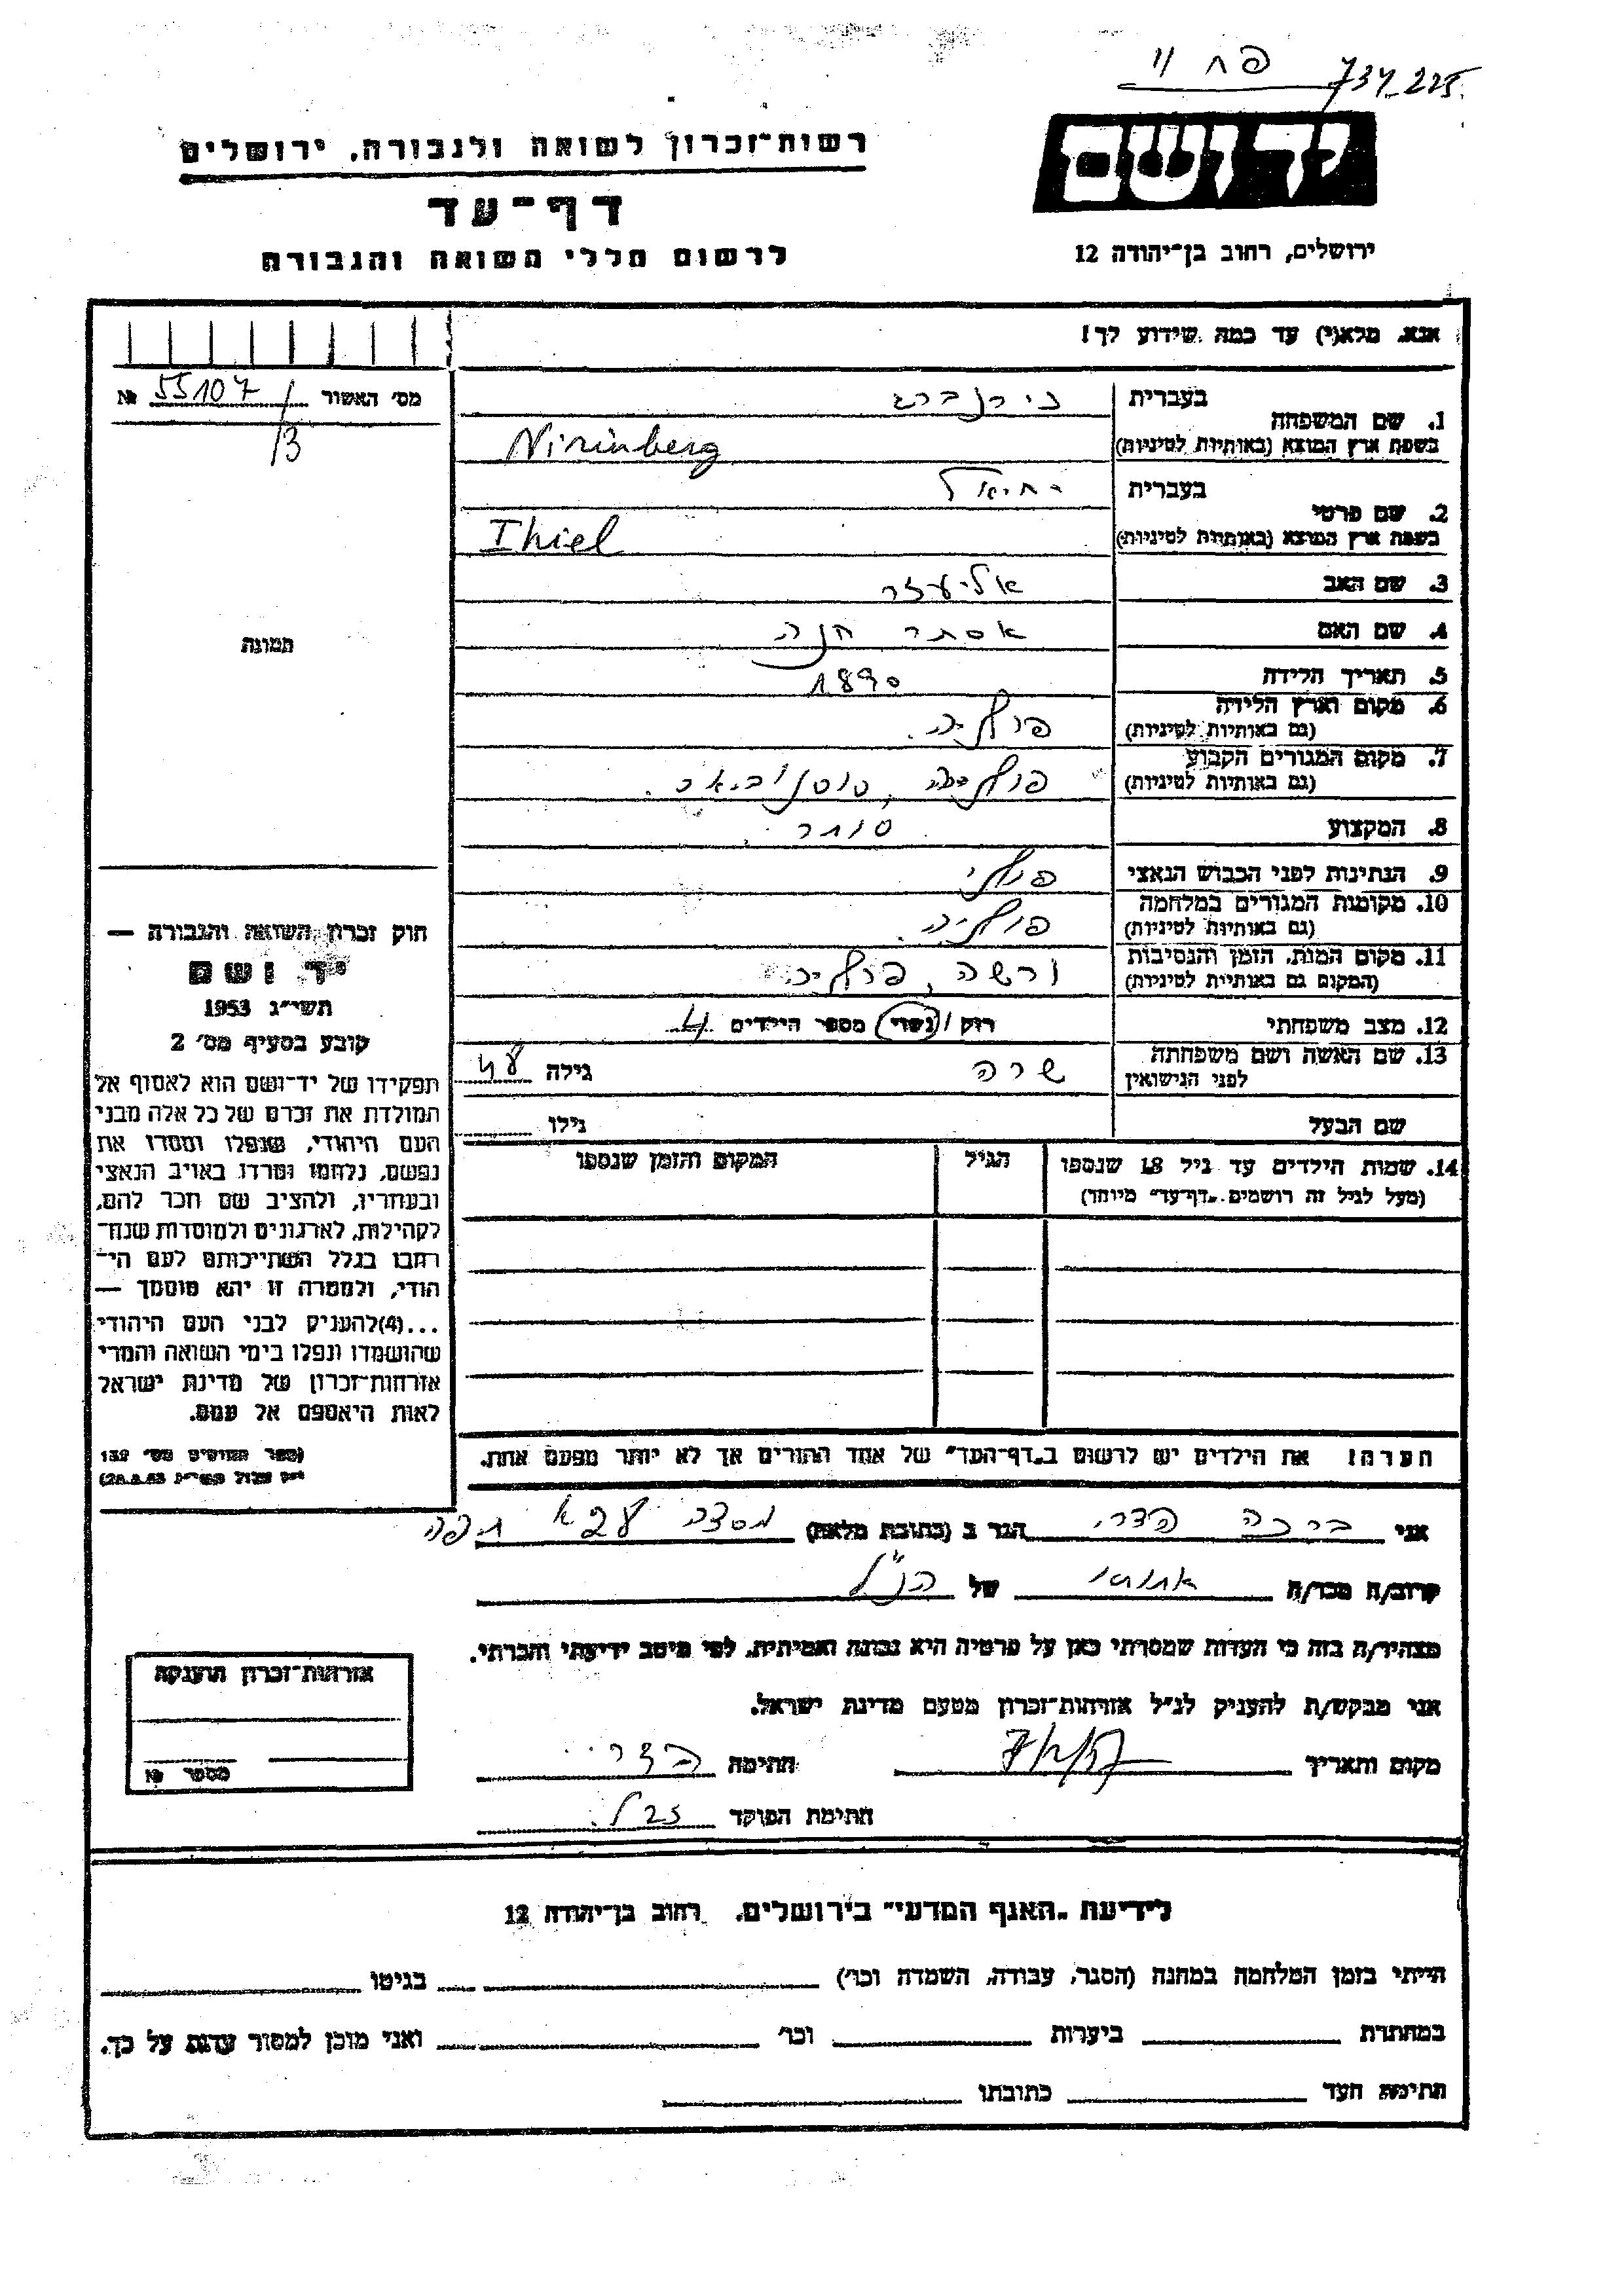 734-225
יד ושם
רשות־זכרון לשואה ולגבורה, ירושלים
דף־עד
לרשום חללי השואה והגבורה
ירושלים, רחוב בן־יהודה 12
אנא, מלא(י) עד כמה שידוע לך!
מס׳ האשור 55107 №
/3
בעברית נירנברג
1. שם המשפחה
בשפת ארץ המוצא (באותיות לטיניות) Nirinberg
בעברית יחיאל
2. שם פרטי
בשפת ארץ המוצא (באותיות לטיניות) Ihiel
3. שם האב אליעזר
4. שם האם אסתר חנה
5. תאריך הלידה 1890
6. מקום וארץ הלידה
(גם באותיות לטיניות) פולניה.
7. מקום המגורים הקבוע
(גם באותיות לטיניות) פולניה,
8. המקצוע סוחר
9. הנתינות לפני הכבוש הנאצי פולני
10. מקומות המגורים במלחמה
(גם באותיות לטיניות) פולניה.
11. מקום המות, הזמן והנסיבות
(המקום גם באותיות לטיניות) ורשה, פולניה
12. מצב משפחתי רוק / נשוי מספר הילדים 4
13. שם האשה ושם משפחתה
לפני הנישואין שרה גילה
שם הבעל גילו
14. שמות הילדים עד גיל 18 שנספו הגיל המקום והזמן שנספו
(מעל לגיל זה רושמים „דף־עד״ מיוחד)
הערה! את הילדים יש לרשום ב„דף־העד״ של אחד ההורים אך לא יותר מפעם אחת.
תמונה
חוק זכרון השואה והגבורה —
יד ושם
תשי״ג 1953
קובע בסעיף מס׳ 2
תפקידו של יד־ושם הוא לאסוף אל
המולדת את זכרם של כל אלה מבני
העם היהודי, שנפלו ומסרו את
נפשם, נלחמו ומרדו באויב הנאצי
ובעוזריו, ולהציב שם וזכר להם,
לקהילות, לארגונים ולמוסדות שנח־
רבו בגלל השתייכותם לעם הי־
הודי, ולמטרה זו יהא מוסמך —
...(4)להעניק לבני העם היהודי
שהושמדו ונפלו בימי השואה והמרי
אזרחות־זכרון של מדינת ישראל
לאות היאספם אל עמם.
(ספר החוקים מס׳ 132
אני ברכה הדר הגר ב (כתובת מלאה) חיפה
קרוב/ה מכר/ה אחותו של הנ״ל
מצהיר/ה בזה כי העדות שמסרתי כאן על פרטיה היא נכונה ואמיתית, לפי מיטב ידיעתי והכרתי.
אני מבקש/ת להעניק לנ״ל אזרחות־זכרון מטעם מדינת ישראל.
מקום ותאריך חתימה הדר
חתימת הפוקד
אזרחות־זכרון הוענקה
מספר №
לידיעת „האגף המדעי״ בירושלים, רחוב בן־יהודה 12
הייתי בזמן המלחמה במחנה (הסגר, עבודה, השמדה וכו׳) בגיטו
במחתרת ביערות וכו׳ ואני מוכן למסור עדות על כך.
חתימת העד כתובתו